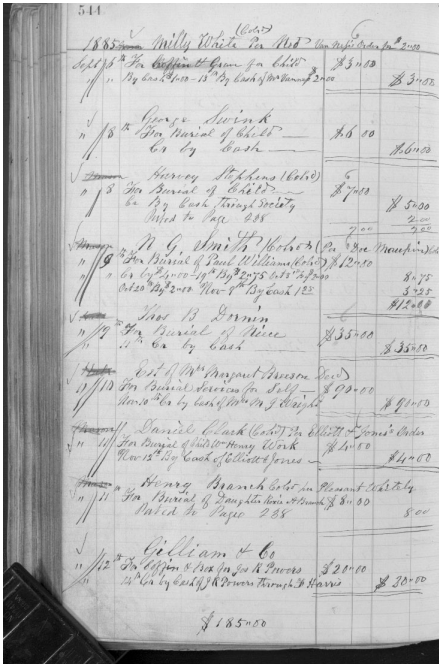 544
(Col'd)
1885 Milly White Per Ned Van Ness Order for $2"00
Sept / 5th For Coffin & Grave for Child $3"00
" / " By Cash $1"00 - 15th By Cash of Mr $2"00 $3"00
George Swink
" / 8th For Burial of Child $6 00
Cr By Cash $6"00
Harvey Stephens (Col'd)
" / 8 For Burial of Child $7"00
Cr By Cash Through Society $5"00
Posted to Page 238 2"00
7 00 7 00
N. G. Smith (Col'd) (Per Doc Maupin)
" / 8th For Burial of Paul Williams (Col'd) $12"00
Cr by $4"00 - 19th By $2"75 Oct 5th by $2"00 8"75
Oct 20th By $2"00 Nov 9th By Cash 1 25 3"25
$12"00
Thos B
" / 9th For Burial of Niece $35"00
" Cr by Cash $35"00
Est of Mrs Margaret Dec'd
" / 10 For Burial Services for Self $90"00
Nov 10th Cr by Cash of Mr M J Wright $90"00
Daniel Clack (Col'd) Per Elliott & Jones Order
" 10 For Burial of Henry Work $4"00
Nov 12th By Cash of Elliott & Jones $4"00
Henry Branch Col'd per Pleasant Whitely
" / 11 For Burial of Daughter Rosie A Branch $8"00
Posted to Page 238 8 00
Gilliam & Co
" / 12th For Coffin & Box for Jos R Powers $20"00
" Cr by Cash of J R Powers through Harris $20"00
$185"00